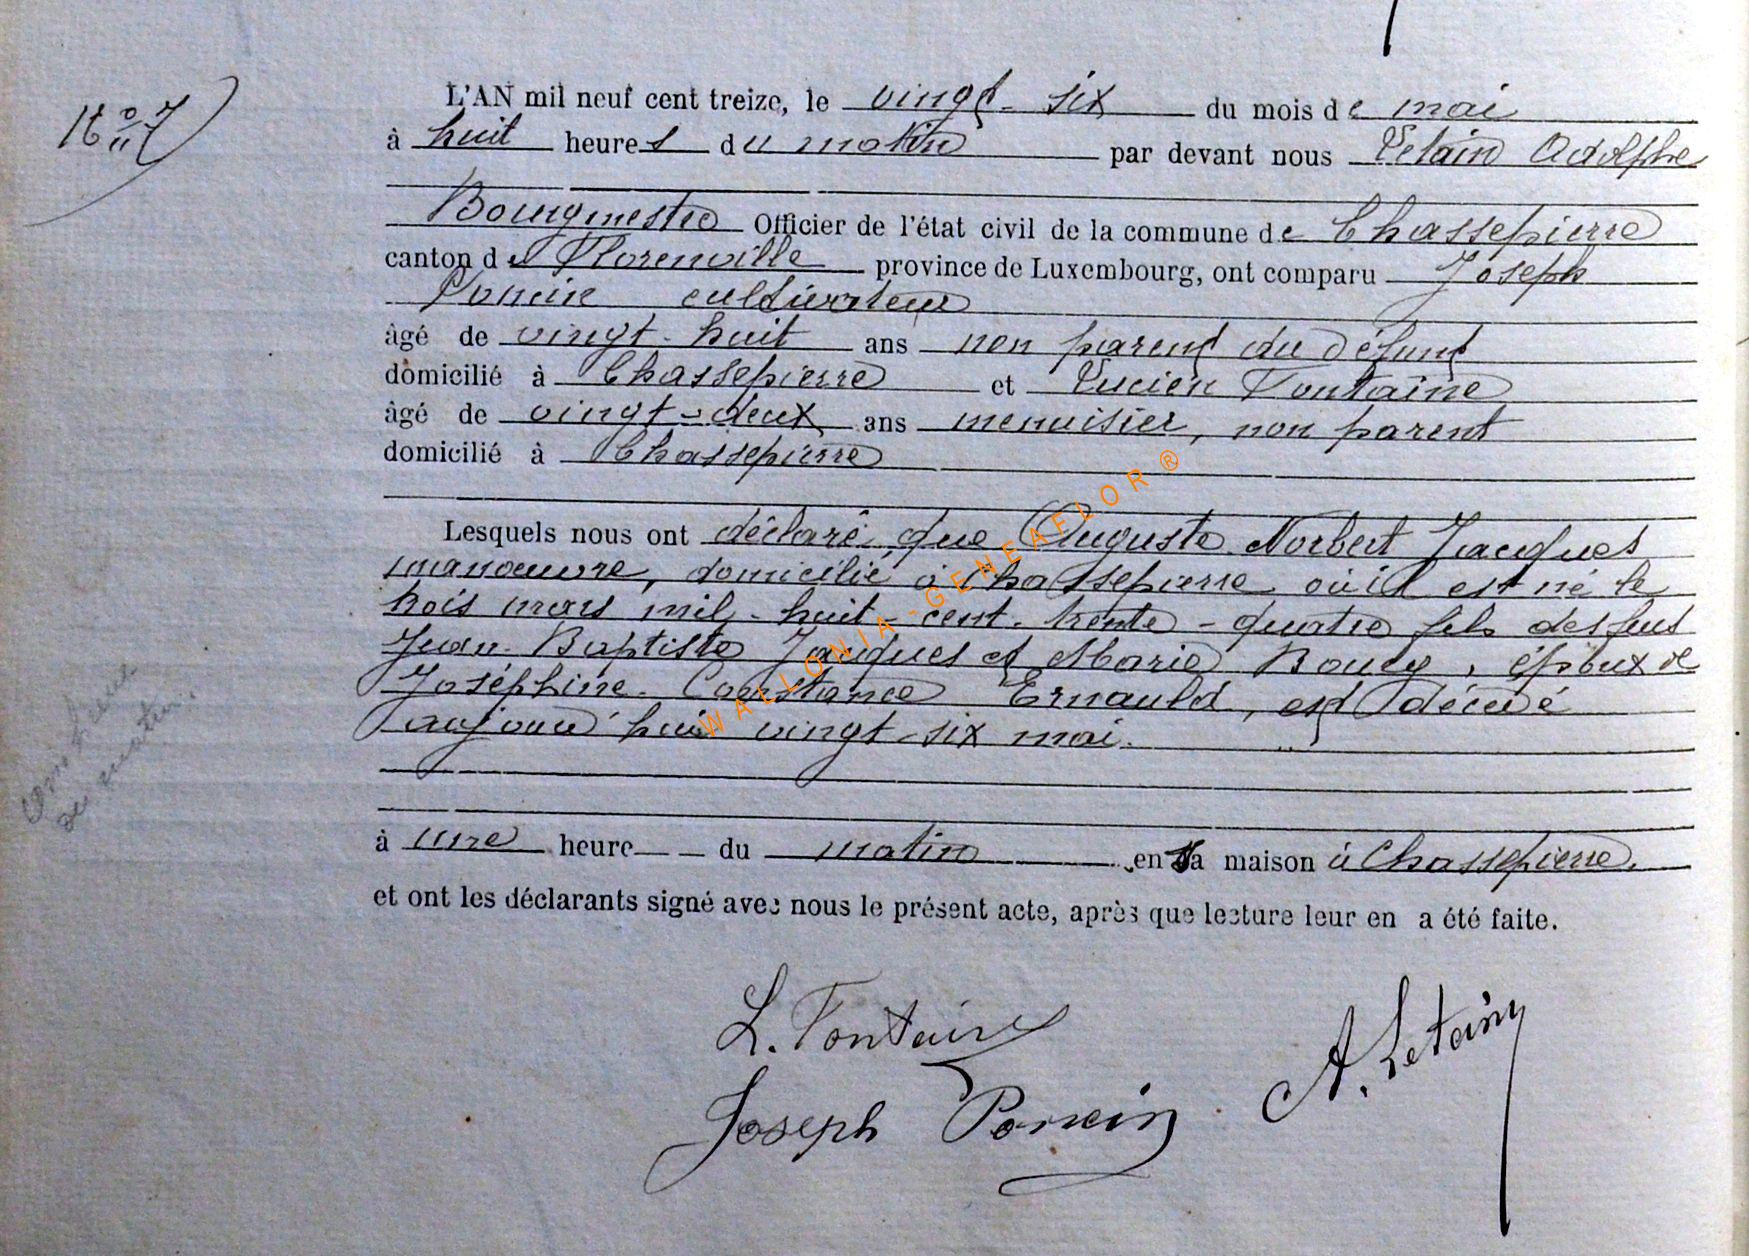 N° 7
L'AN mil neuf cent treize, le vingt-six du mois de mai
à huit heures du matin par devant nous Letain Adolphe
Bourgmestre Officier de l'état civil de la commune de Chassepierre
canton de Florenville province de Luxembourg, ont comparu Joseph
Poncin cultivateur
âgé de vingt-huit ans non parent du défunt
domicilié à Chassepierre et Lucien Fontaine
âgé de vingt-deux ans menuisier, non parent
domicilié à Chassepierre
Lesquels nous ont déclaré que Auguste Norbert Jacques
manoeuvre, domicilié à Chassepierre où il est né le
trois mars mil-huit-cent-trente-quatre fils des feus
Jean-Baptiste Jacques et Marie Roucy, époux de
Joséphine-Constance Ernauld, est décédé
aujourd'hui vingt-six mai.
à une heure du matin en sa maison à Chassepierre.
et ont les déclarants signé avec nous le présent acte, après que lecture leur en a été faite.
L. Fontaine
Joseph Poncin
A. Letain
WALLONIA-GENEAFLOR ®